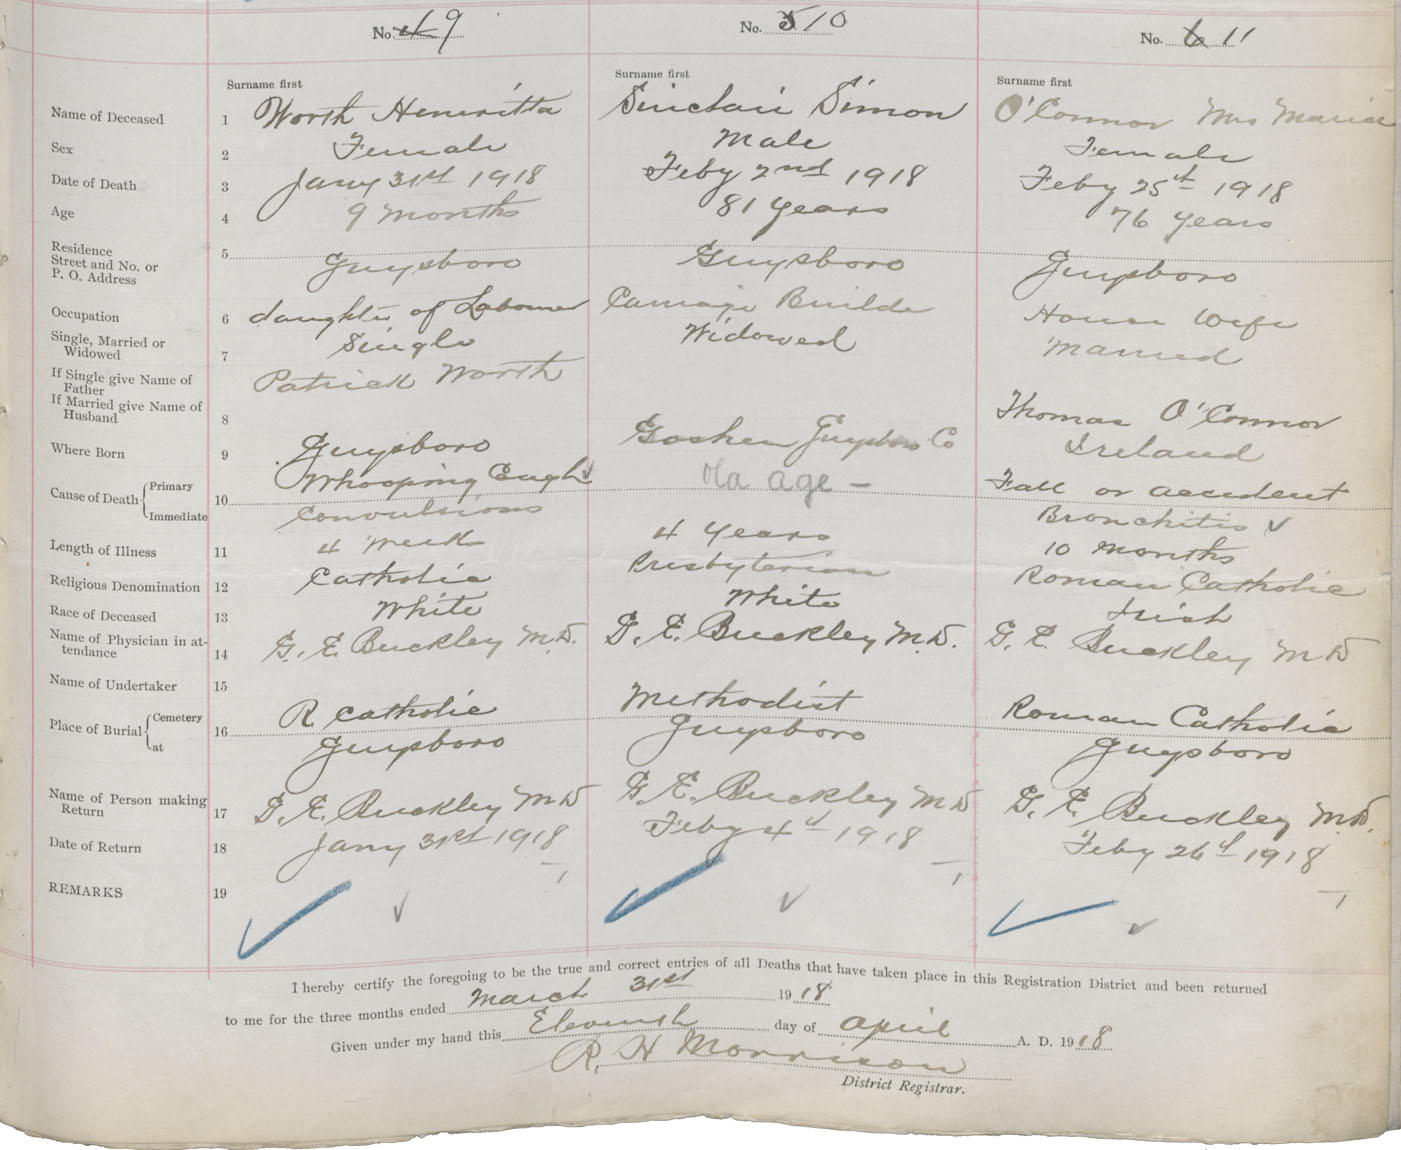 No. 4 9 No. 5 10 No. 6 11
Surname first Surname first Surname first
Name of Deceased 1 Worth Henrietta Sinclair Simon O'Connor Mrs Maria
Sex 2 Female Male Female
Date of Death 3 Jany 31st 1918 Feby 2nd 1918 Feby 25th 1918
Age 4 9 months 81 years 76 years
Residence
Street and No. or
P. O. Address 5 Guysboro Guysboro Guysboro
Occupation 6 daughter of Labourer Carriage Builder House Wife
Single, Married or
Widowed 7 Single Widowed Married
If Single give Name of
Father Patrick Worth
If Married give Name of
Husband 8 Thomas O'Connor
Where Born 9 Guysboro Goshen Guysboro Co Ireland
Cause of Death Primary 10 Whooping Cough Old Age - Fall or accident
Immediate Convulsions Bronchitis
Length of Illness 11 4 week 4 years 10 months
Religious Denomination 12 Catholic Presbyterian Roman Catholic
Race of Deceased 13 White White Irish
Name of Physician in at-
tendance 14 G. E. Buckley M.D. G. E. Buckley M.D. G. E. Buckley M D
Name of Undertaker 15
Place of Burial Cemetery 16 R Catholic Methodist Roman Catholic
at Guysboro Guysboro Guysboro
Name of Person making
Return 17 G. E. Buckley M D G. E. Buckley M D G. E. Buckley M.D.
Date of Return 18 Jany 31st 1918 Feby 4th 1918 Feby 26th 1918
REMARKS 19
I hereby certify the foregoing to be the true and correct entries of all Deaths that have taken place in this Registration District and been returned
to me for the three months ended March 31st 1918
Given under my hand this Eleventh day of April A. D. 1918
R. H Morrison
District Registrar.